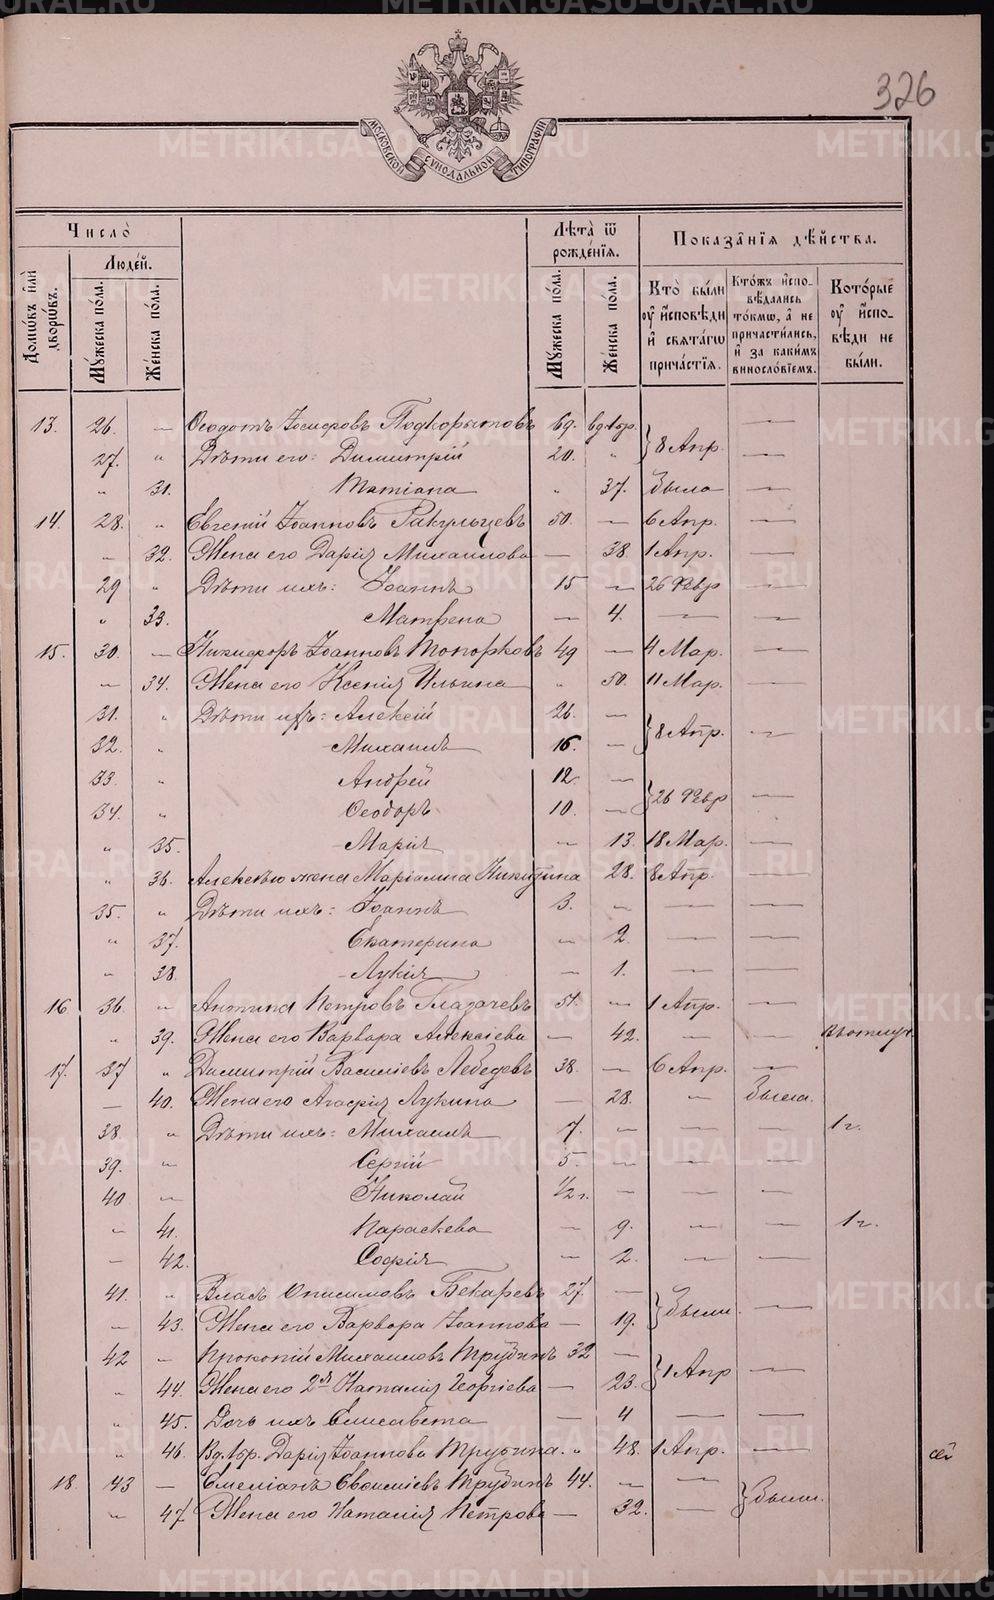 326
МОСКОВСКОЙ СУНОДАЛЬНОЙ ТИПОГРАФІИ
Число̀
Домѡвъ и҆лѝ дворѡвъ.
Людей.
Мꙋжеска по́ла.
Же́нска по́ла.
Лѣ́та ѿ рожде́нїѧ.
Мꙋжеска по́ла.
Же́нска по́ла.
Показа̂нїѧ дѣ́йства.
Кто̀ бы́ли оу҆ и҆сповѣди и҆ свѧта́гѡ прича́стїѧ.
Кто́жъ и҆спо-вѣдались то́кмѡ, а҆ не причасти́лись, и҆ за каки́мъ винословїемъ.
Кото́рые оу҆ и҆спо-вѣди не бы́ли.
13. 26. — Ѳеодотъ Іосифовъ Подкорытовъ 69. вд. 1 бр. —
27. " Дѣти его: Димитрій 20. " } 8 Апр. —
" 31. Татіана " 37. была —
14. 28. " Евгеній Іоанновъ Ракульцевъ 50. — 6 Апр. —
— 32. Жена его Дарія Михаилова — 38 1 Апр. —
29 " Дѣти ихъ: Іоаннъ 15 — 26 Февр —
" 33. Матрена — 4. — —
15. 30. — Никифоръ Іоанновъ Топорковъ 49 — 4 Мар. —
— 34. Жена его Ксенія Ильина " 50. 11 Мар. —
31. " Дѣти ихъ: Алексій 26. —
32. " Михаилъ 16. — } 8 Апр. —
33. " Андрей 12. —
34. " Ѳеодоръ 10. — } 26 Февр —
" 35. Марія — 13. 18 Мар. —
" 36. Алексѣю жена Маріамна Никитина 28. 8 Апр. —
35. " Дѣти ихъ: Іоаннъ 3. — — —
" 37. Екатерина — 2. — —
" 38. Лукія — 1. — —
16 36. " Антипа Петровъ Глазачевъ 51. — 1 Апр. —
" 39. Жена его Варвара Алексіева — 42. — — въ отлуч.
17. 37 " Димитрій Василіевъ Лебедевъ 38. — 6 Апр. —
— 40. Жена его Агафія Лукина — 28. " была.
38. " Дѣти ихъ: Михаилъ 7. — — — 1 г.
39. " Сергій 5. — — —
40 — Николай 1/2 г. — — —
— 41. Параскева — 9. — — 1 г.
— 42. Софія — 2. — —
41. " Власъ Онисимовъ Бекаревъ 27. —
— 43. Жена его Варвара Іоаннова — 19. } были. —
42 — Прокопій Михаиловъ Трубинъ 32 —
" 44. Жена его 2я Наталія Георгіева — 23. } 1 Апр —
" 45. Дочь ихъ Елисавета — 4 — —
" 46. Вд. 1 бр. Дарія Іоаннова Трубина. " 48. 1 Апр. —
18. 43 — Емеліанъ Евсиміевъ Трубинъ 44. —
" 47. Жена его Наталія Петрова — 32. — } были.
сей
METRIKI.GASO-URAL.RU